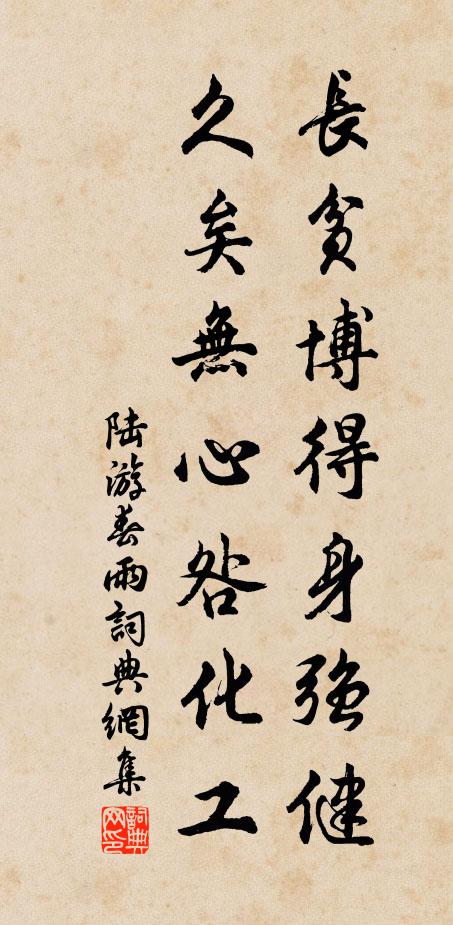 長貧博得身強健
久矣無心咎化工
陆游春雨詞典網集
詞典网印